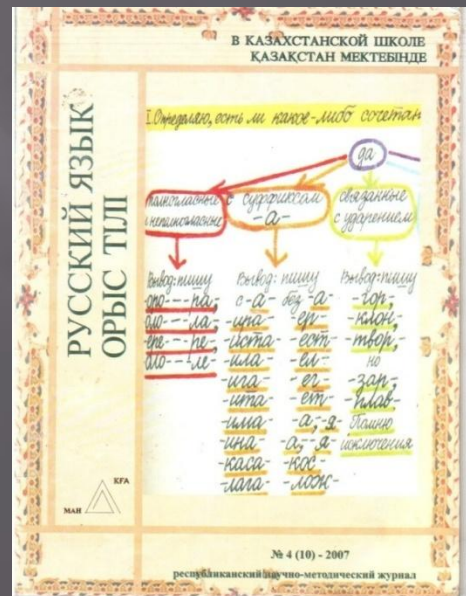 В КАЗАХСТАНСКОЙ ШКОЛЕ
ҚАЗАҚСТАН МЕКТЕБІНДЕ
РУССКИЙ ЯЗЫК
ОРЫС ТІЛІ
I. Определяю, есть ли какое-либо сочетан
да
полногласные и неполногласные
с суффиксом -а-
связанные с ударением
Вывод: пишу
оро - - - ра-
оло - - - ла-
ере - - - ре-
оло - - - ле-
Вывод: пишу
с -а- без -а-
-ира- -ер-
-иста- -ест-
-ила- -ел-
-ига- -ег-
-ита- -ет-
-има- -а, я-
-ина- -а, я-
-каса- -кос-
-лага- -лож-
Вывод: пишу
-гор,
-клон-
-твор,
но
-зар,
-плав-
Помню
исключения
МАН КҒА
№ 4 (10) - 2007
республиканский научно-методический журнал